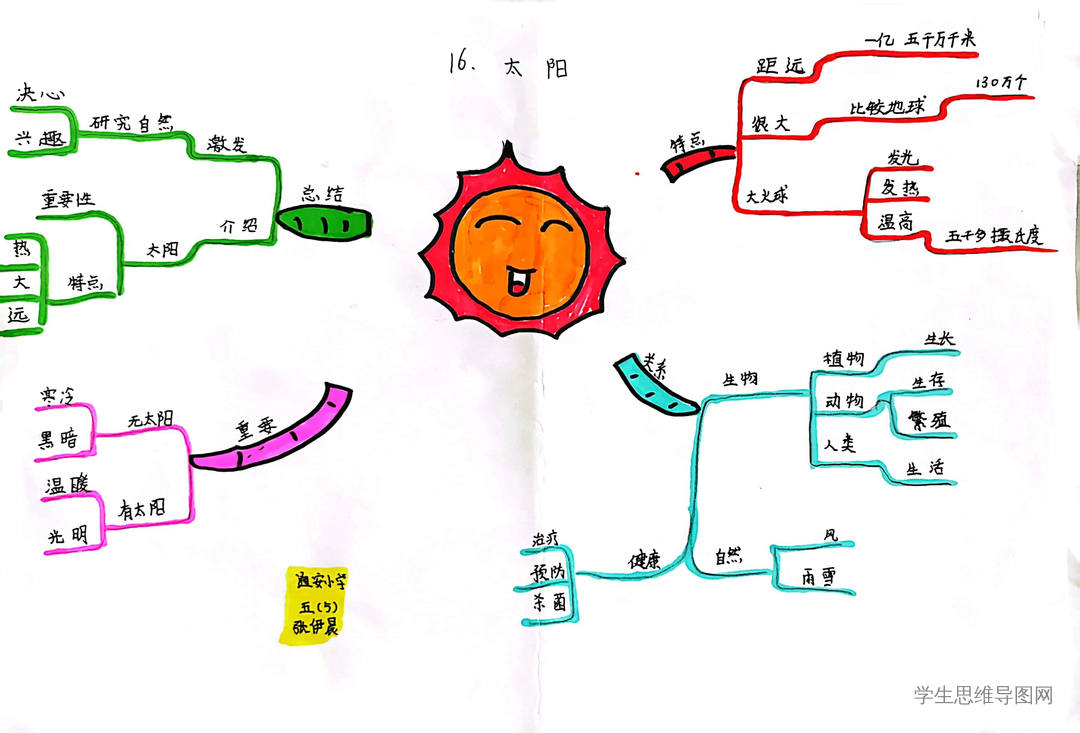 16. 太阳
特点
距远
一亿 五千万千米
很大
比较地球
130万个
大火球
发光
发热
温高
五千多摄氏度
关系
生物
植物
生长
动物
生存
繁殖
人类
生活
自然
风
雨雪
健康
治疗
预防
杀菌
重要
无太阳
寒冷
黑暗
有太阳
温暖
光明
总结
激发
研究自然
决心
兴趣
介绍
太阳
重要性
特点
热
大
远
小学
五(5)
张伊晨
学生思维导图网